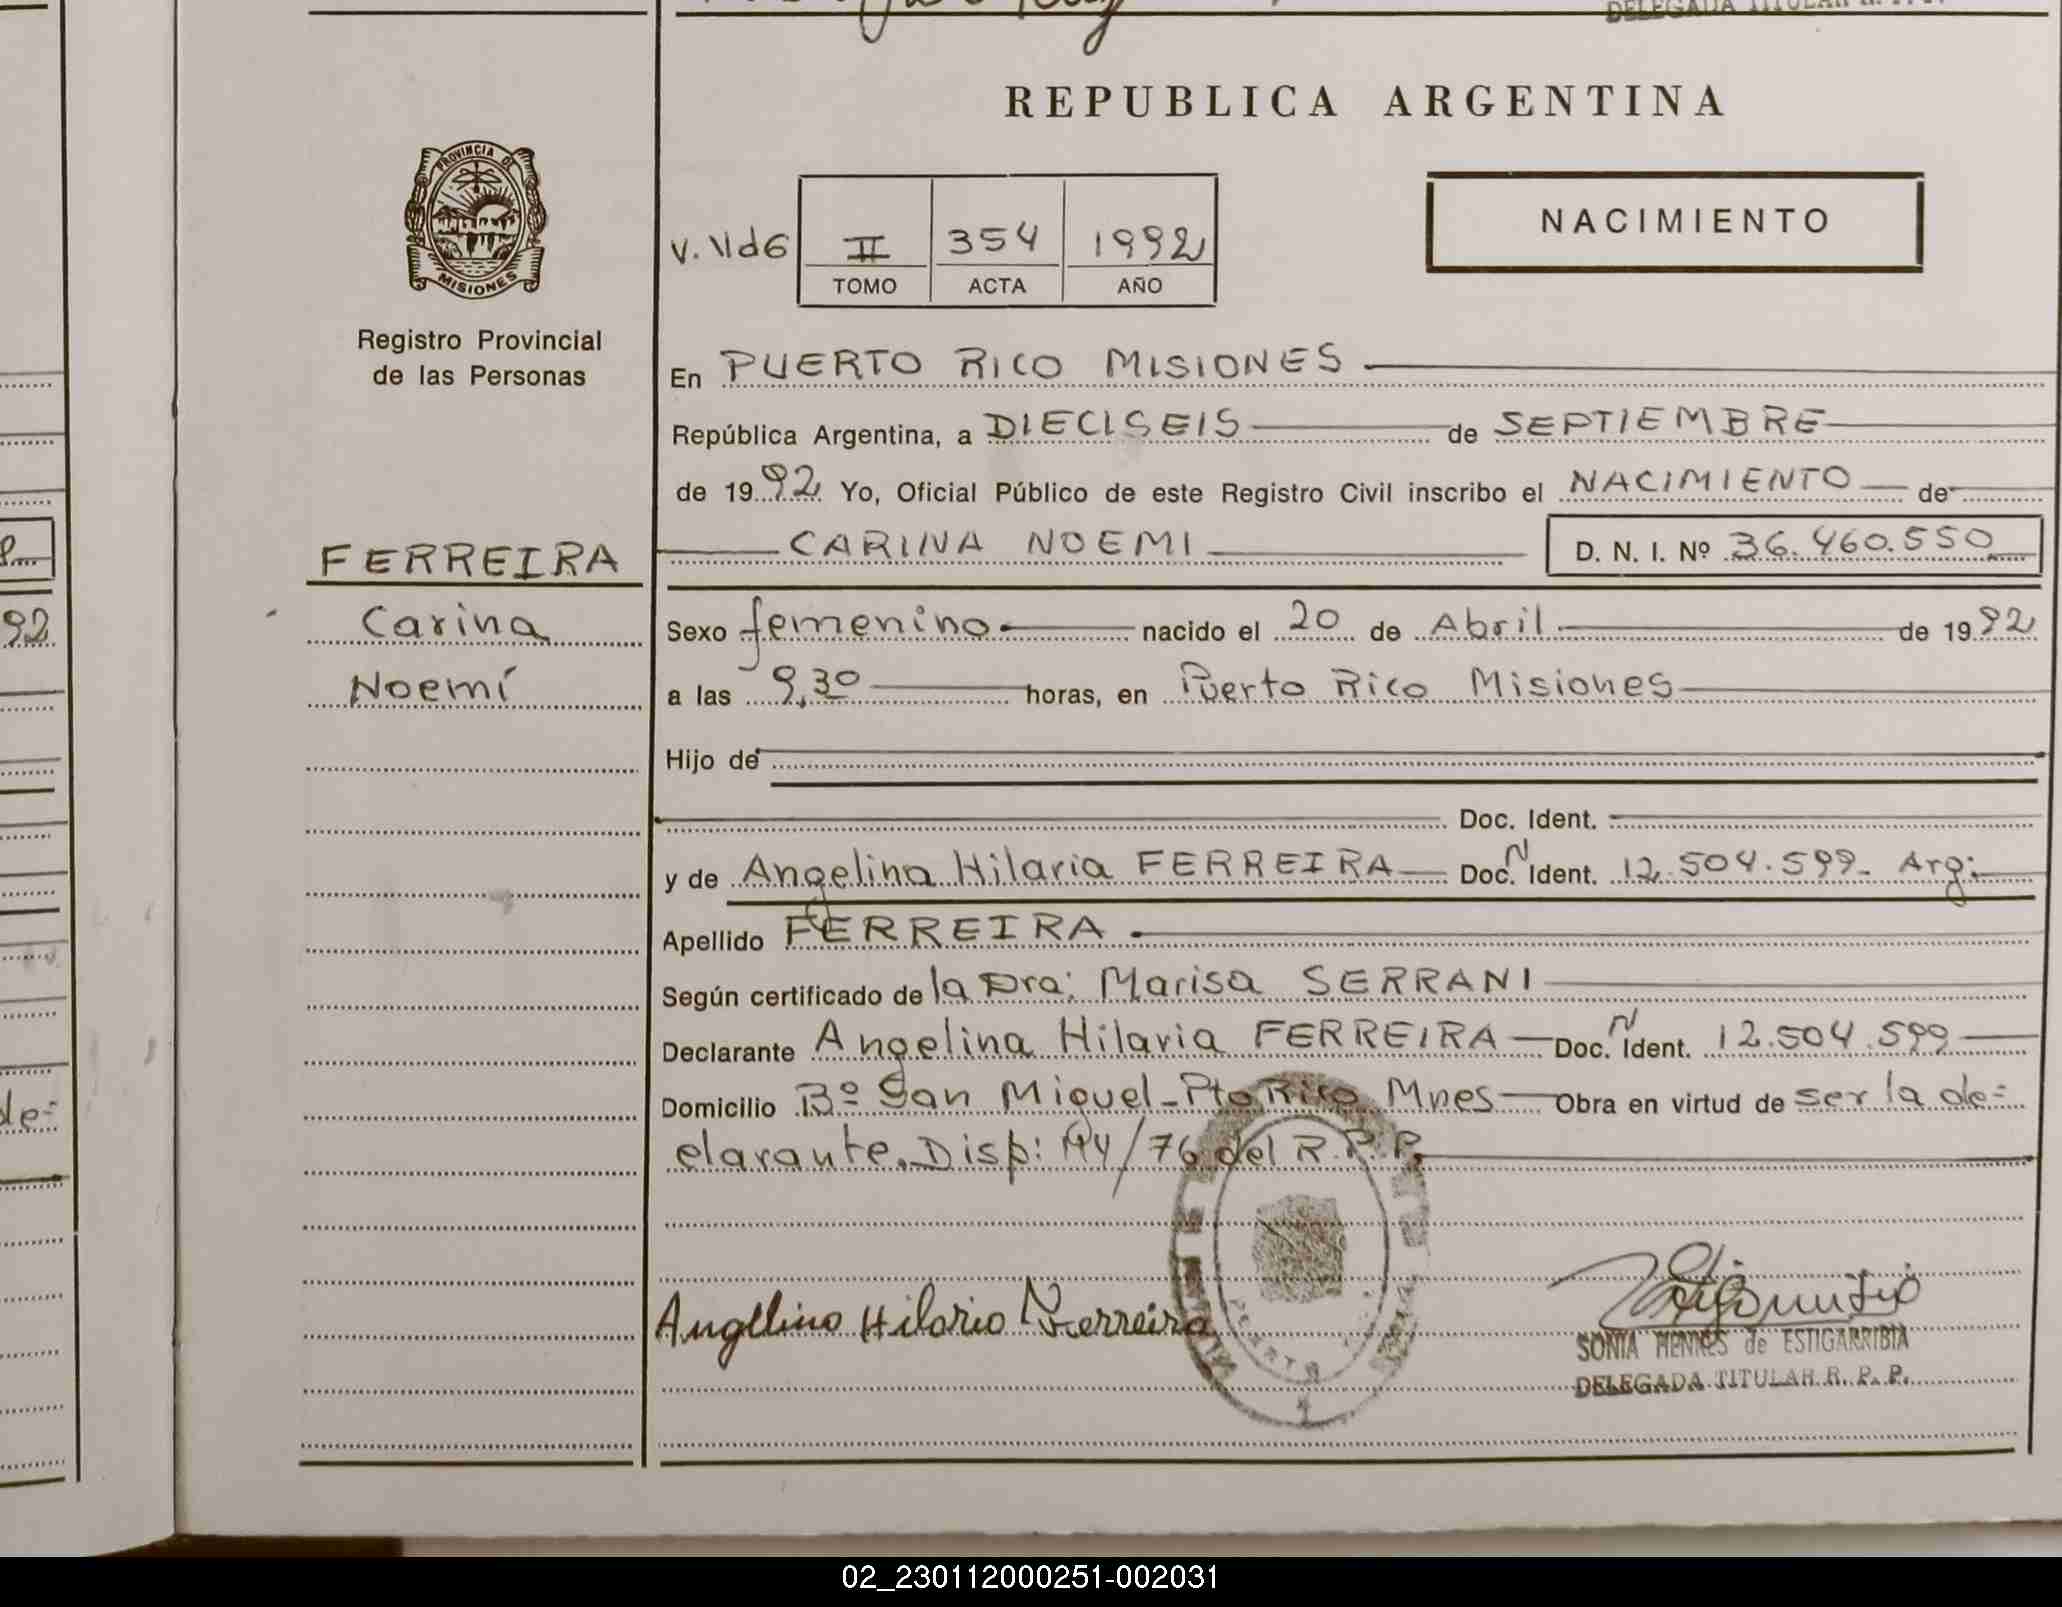 DELEGADA TITULAR R. P. P.
REPUBLICA ARGENTINA
PROVINCIA DE
MISIONES
Registro Provincial
de las Personas
V. Vld6 II 354 1992
TOMO ACTA AÑO
NACIMIENTO
En PUERTO RICO MISIONES
República Argentina, a DIECISEIS de SEPTIEMBRE
de 1992 Yo, Oficial Público de este Registro Civil inscribo el NACIMIENTO de
FERREIRA
Carina
Noemí
CARINA NOEMI D. N. I. Nº 36.460.550
Sexo femenino nacido el 20 de Abril de 1992
a las 9,30 horas, en Puerto Rico Misiones
Hijo de
Doc. Ident.
y de Angelina Hilaria FERREIRA Doc. N Ident. 12.504.599- Arg:
Apellido FERREIRA
Según certificado de la Dra: Marisa SERRANI
Declarante Angelina Hilaria FERREIRA Doc. N Ident. 12.504.599
Domicilio Bº San Miguel-Pto Rico Mnes Obra en virtud de ser la de=
clarante. Disp: 144/76 del R.P.P.
Angelina Hilaria N Ferreira
SONIA HENNES de ESTIGARRIBIA
DELEGADA TITULAR R. P. P.
92
de=
02_230112000251-002031